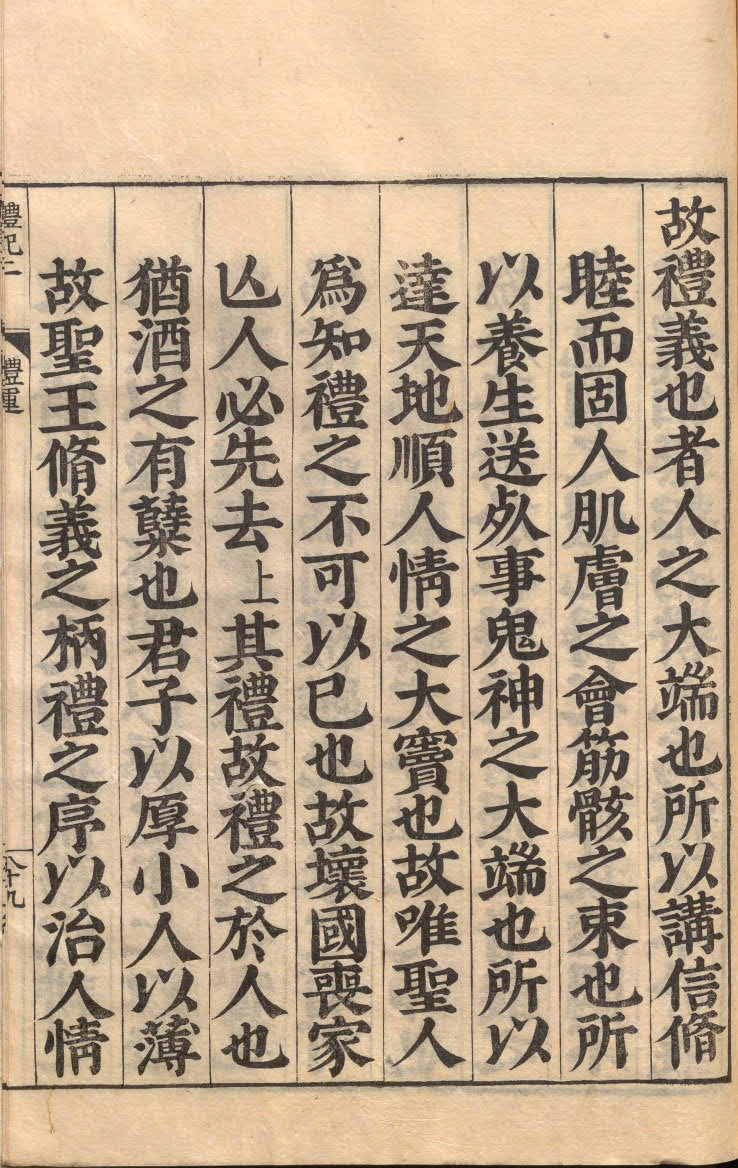 故禮義也者人之大端也所以講信脩
睦而固人肌膚之會筋骸之束也所
以養生送㱙事鬼神之大端也所以
達天地順人情之大竇也故唯聖人
爲知禮之不可以已也故壞國喪家
亾人必先去上其禮故禮之於人也
猶酒之有糵也君子以厚小人以薄
故聖王脩義之柄禮之序以治人情
禮記二
禮運
八十九